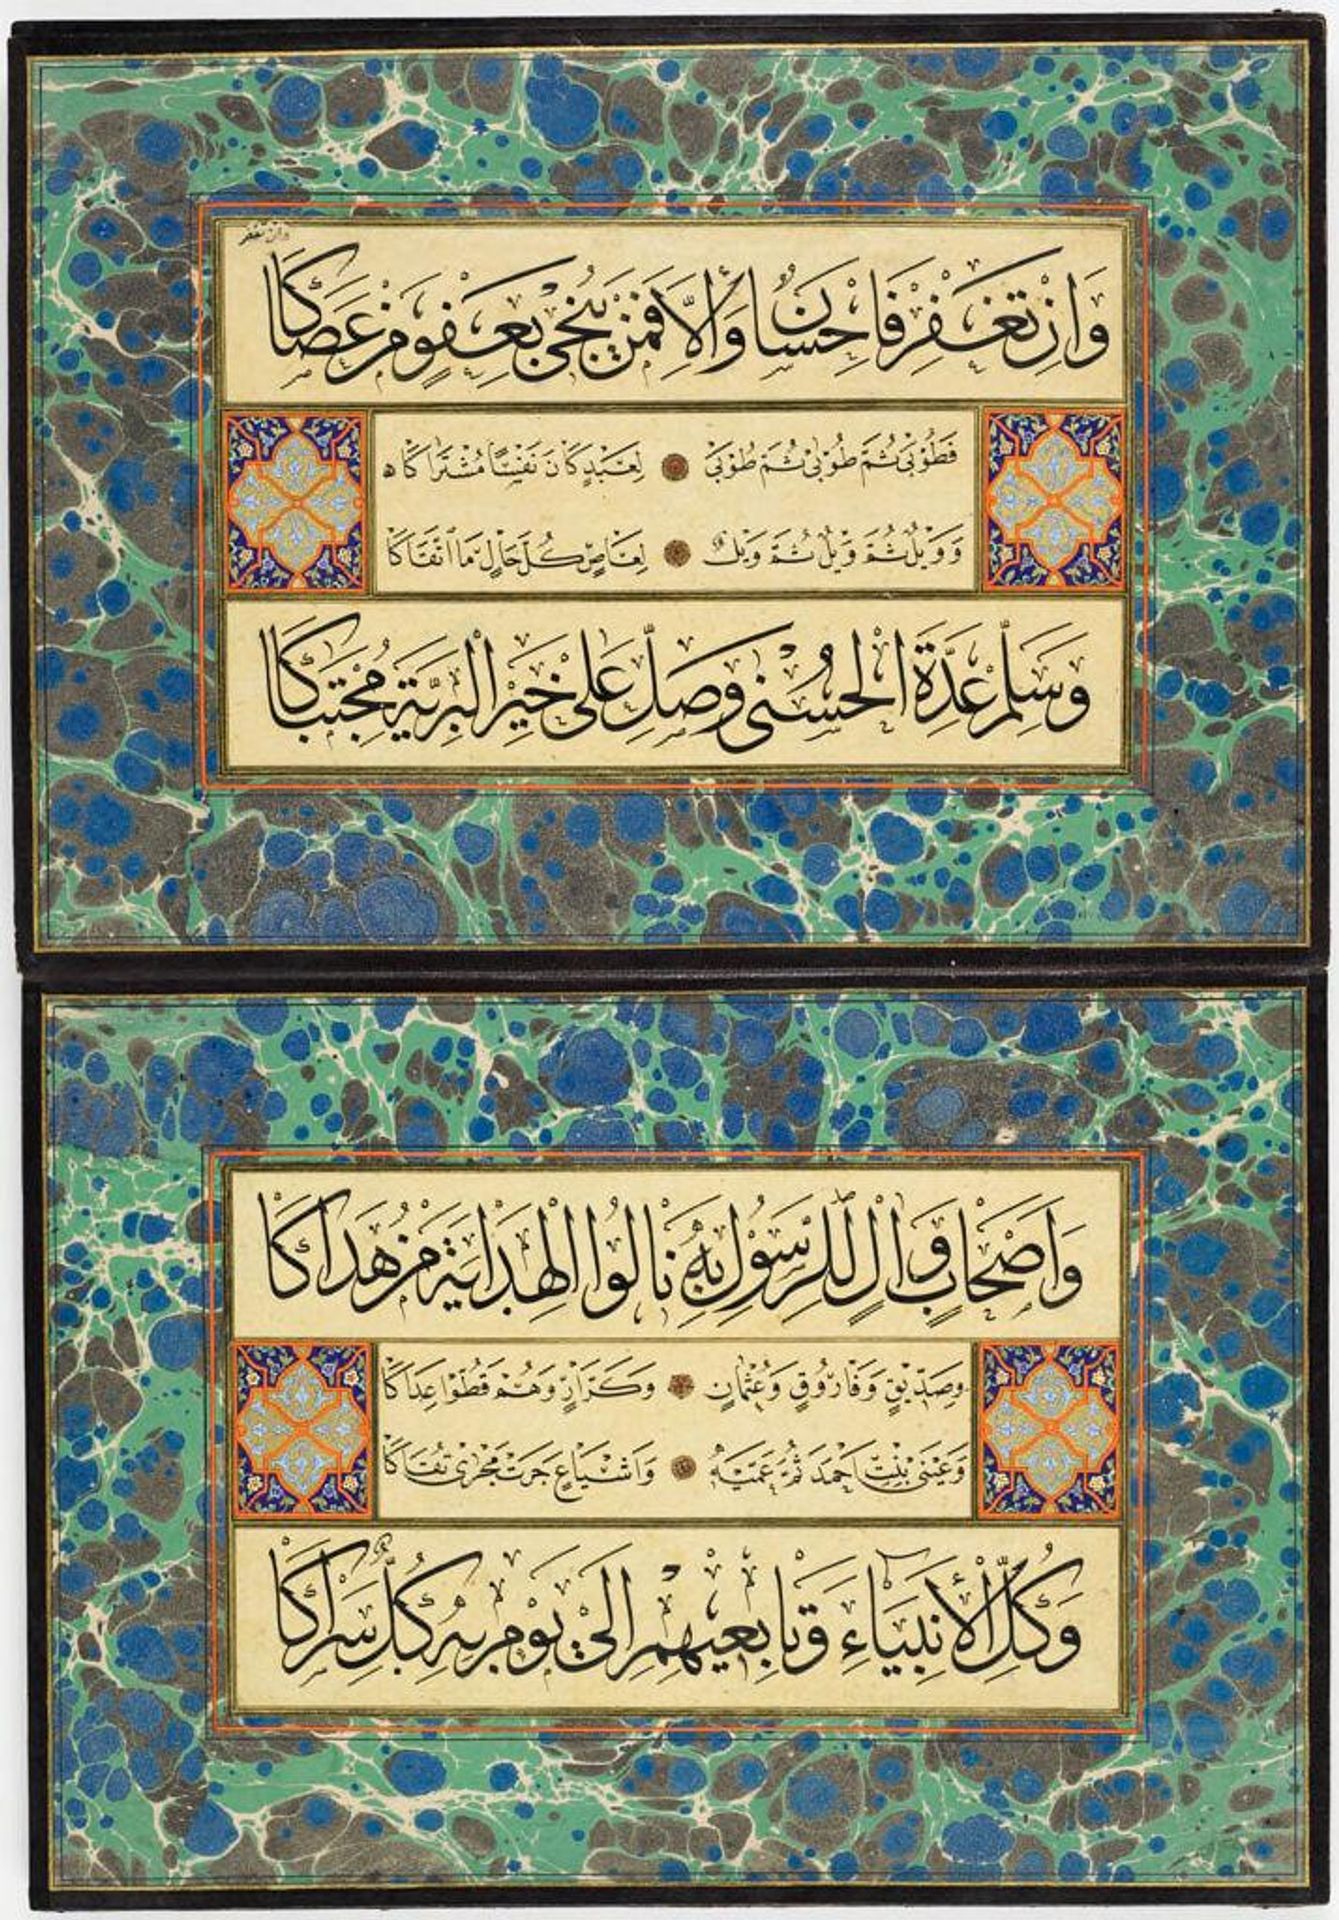 وان تغفر
وَاِنْ تَغْفِرْ فَاِحْسَانٌ وَاِلَّا فَمَنْ يُنْجٰى بِعَفْوٍ مَنْ عَصَاكَا
فَطُوْبٰى ثُمَّ طُوْبٰى ثُمَّ طُوْبٰى لِعَبْدٍ كَانَ نَفْسًا مُشْتَرَاكَا
وَوَيْلٌ ثُمَّ وَيْلٌ ثُمَّ وَيْلٌ لِعَاصٍ كُلَّ حَالٍ مَا اتَّقَاكَا
وَسَلِّمْ عِدَّةَ الْحُسْنٰى وَصَلِّ عَلٰى خَيْرِ الْبَرِيَّةِ مُجْتَبَاكَا
وَاَصْحَابٍ وَاٰلٍ لِلرَّسُوْلِ بِهِ نَالُوا الْهِدَايَةَ مَنْ هَدَاكَا
وَصِدِّيْقٍ وَفَارُوْقٍ وَعُثْمَانٍ وَكَرَّارٍ وَهُمْ قَطُّوْا عِدَاكَا
وَعَيْنَىْ بِنْتِ اَحْمَدَ ثُمَّ عَمَّيْهِ وَاَشْيَاعٍ جَرَتْ مَجْرٰى تُقَاكَا
وَكُلِّ الْاَنْبِيَاءِ وَتَابِعِيْهِمْ اِلٰى يَوْمٍ بِهِ كُلٌّ يَرَاكَا